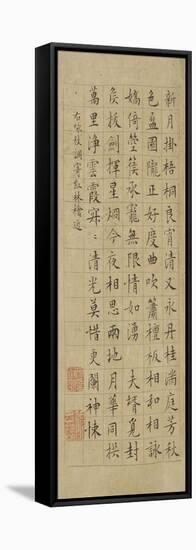 新月掛梧桐良宵清又永丹桂滿庭芳秋
色盈園隴正好度曲吹簫檀板相和相詠
嬌倚箜篌永寵無限情如湧 夫壻覓封
矦拔劍揮星爓今夜相思兩地月華同拱
萬里淨雲霞寂〻清光莫惜更闌神悚
右咏 調寄紅林檎近